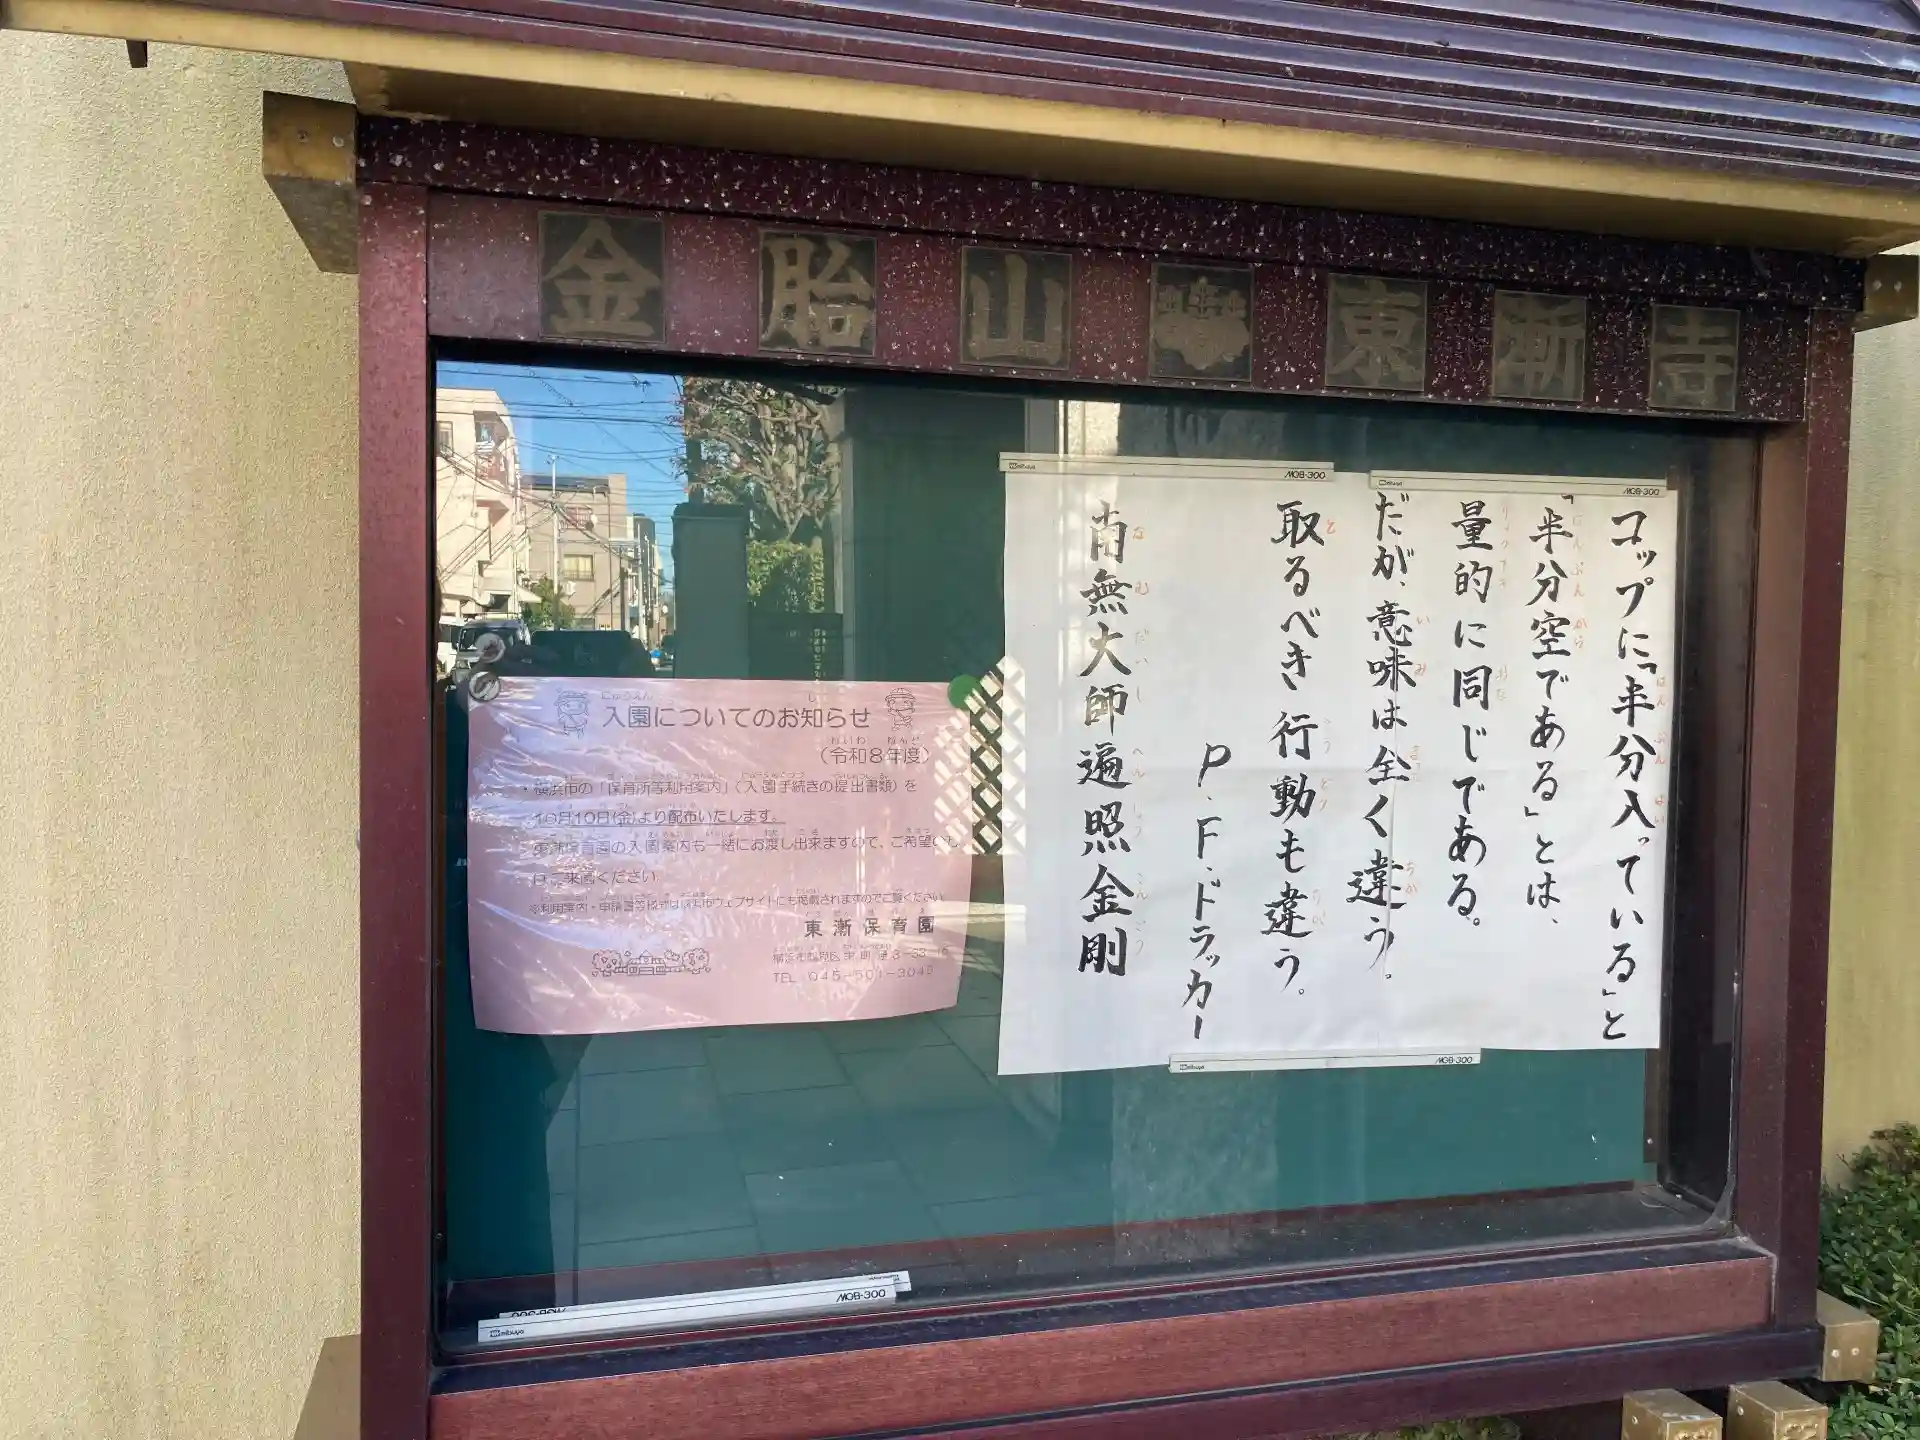 金胎山 東漸寺
コップに「半分入っている」と
「半分空である」とは、
量的に同じである。
だが、意味は全く違う。
取るべき行動も違う。
P.F.ドラッカー
南無大師遍照金剛
入園についてのお知らせ
(令和8年度)
・横浜市の「保育所等利用案内」(入園手続きの提出書類)を
10月10日(金)より配布いたします。
東漸保育園の入園案内も一緒にお渡し出来ますので、ご希望の方
はご来園ください。
※利用案内・申請書等様式は横浜市ウェブサイトにも掲載されますのでご覧ください
東漸保育園
横浜市鶴見区
TEL 045-501-3049
MGB-300
MGB-300
MGB-300
MGB-300